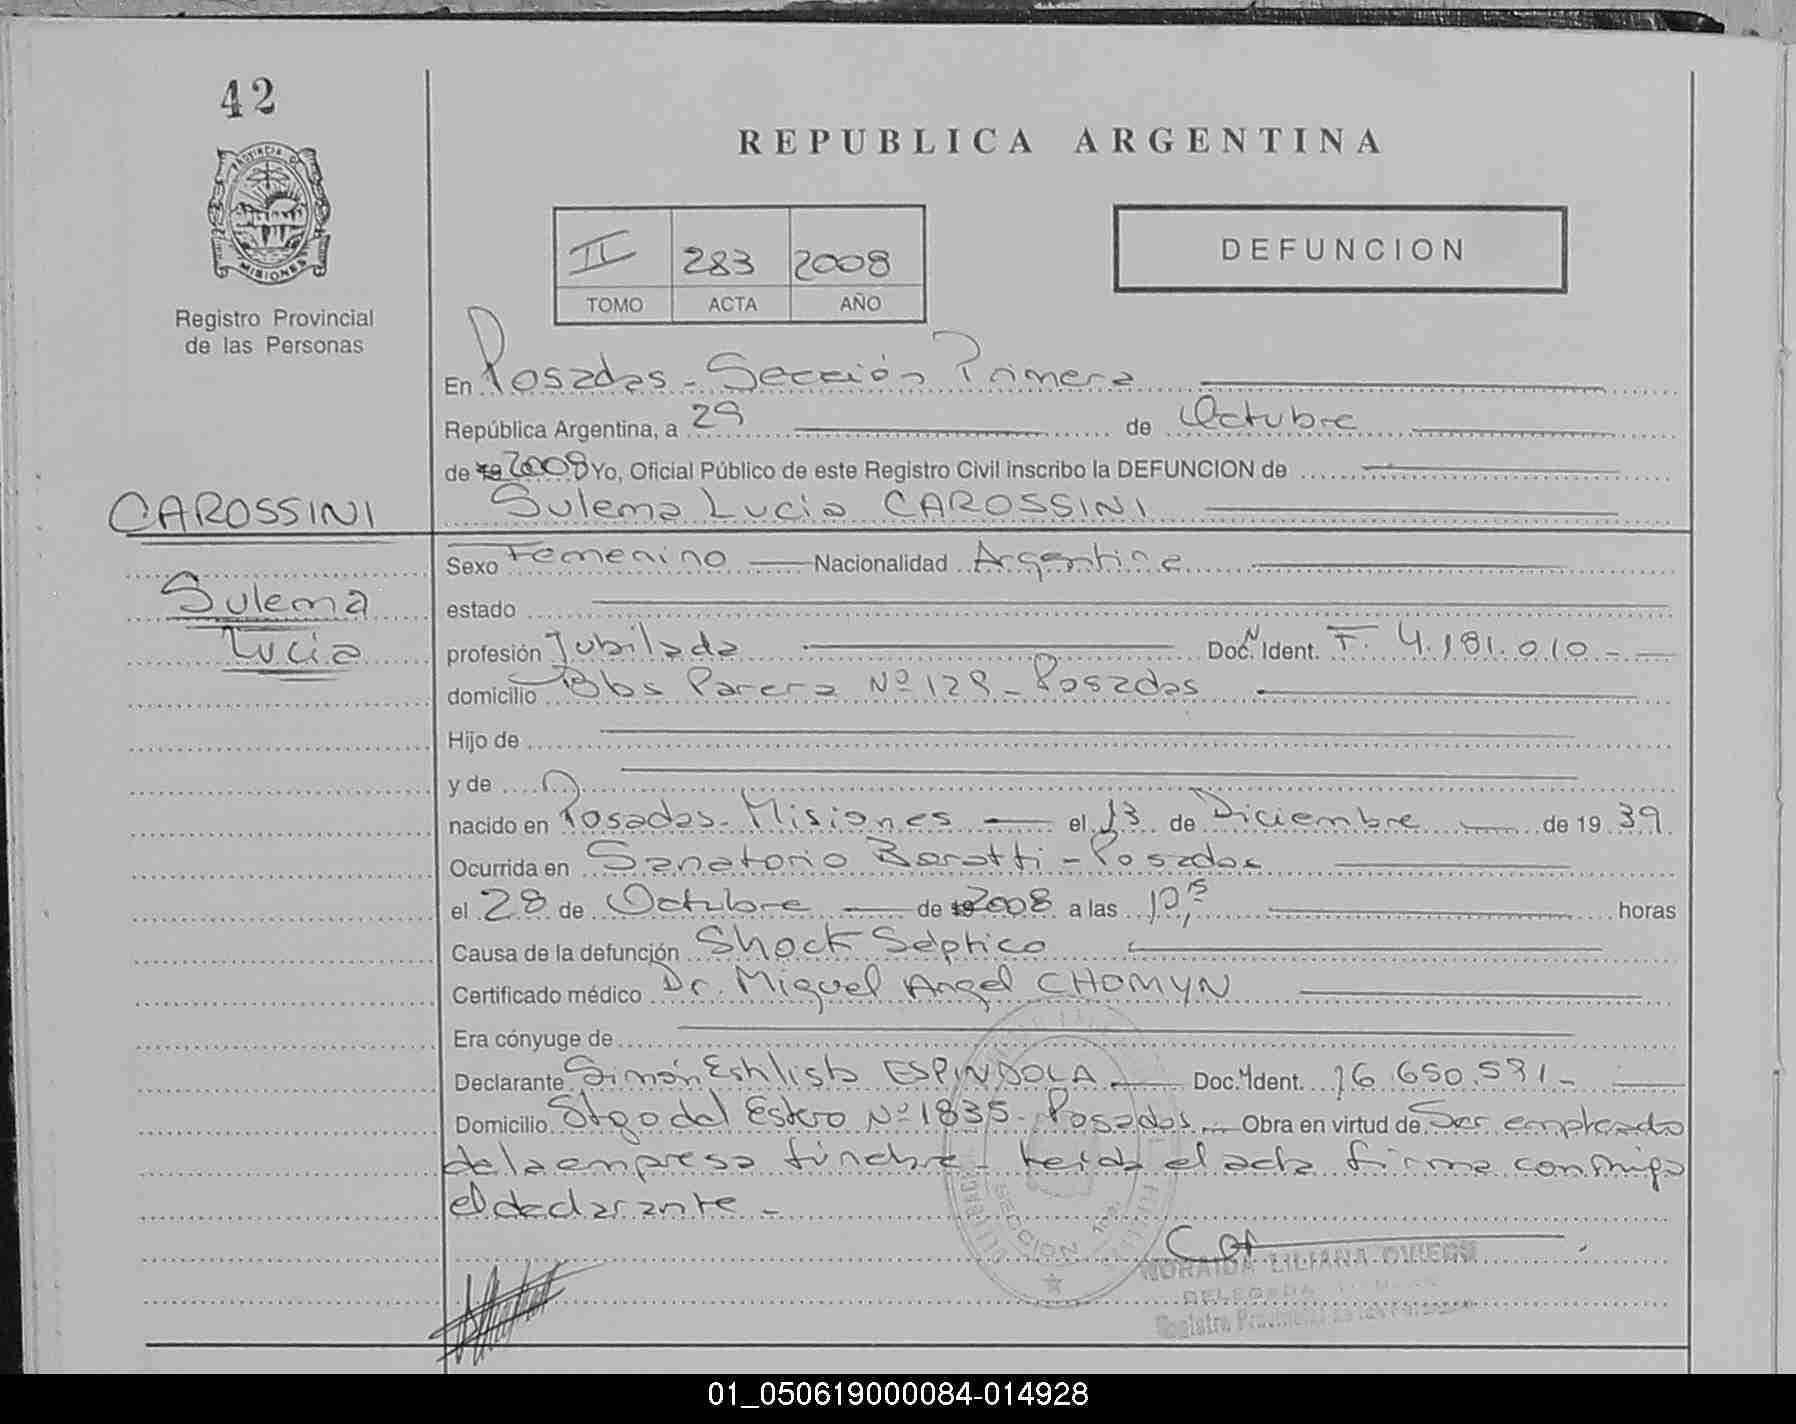 42
PROVINCIA DE
MISIONES
Registro Provincial
de las Personas
REPUBLICA ARGENTINA
II 283 2008
TOMO ACTA AÑO
DEFUNCION
En Posadas - Sección Primera
República Argentina, a 29 de Octubre
de 19 2008 Yo, Oficial Público de este Registro Civil inscribo la DEFUNCION de
CAROSSINI
Sulema Lucia CAROSSINI
Sulema
Lucia
Sexo Femenino Nacionalidad Argentina
estado
profesión Jubilada Doc. N Ident. F. 4.181.010 -
domicilio Bbs Parera Nº 129 - Posadas
Hijo de
y de
nacido en Posadas - Misiones el 13 de Diciembre de 19 39
Ocurrida en Sanatorio Boratti - Posadas
el 28 de Octubre de 19 2008 a las horas
Causa de la defunción Shock Séptico
Certificado médico Dr. Miguel Angel CHOMYN
Era cónyuge de
Declarante Simón ESPINDOLA Doc. N Ident. 16.650.591 -
Domicilio Stgo del Estero Nº 1835 - Posadas Obra en virtud de Ser empleado
de la empresa fúnebre - Leida el acta firma conmigo
el declarante -
SECCION 1RA
NORAIDA LILIANA
DELEGADA
Registro Provincial de las Personas
01_050619000084-014928